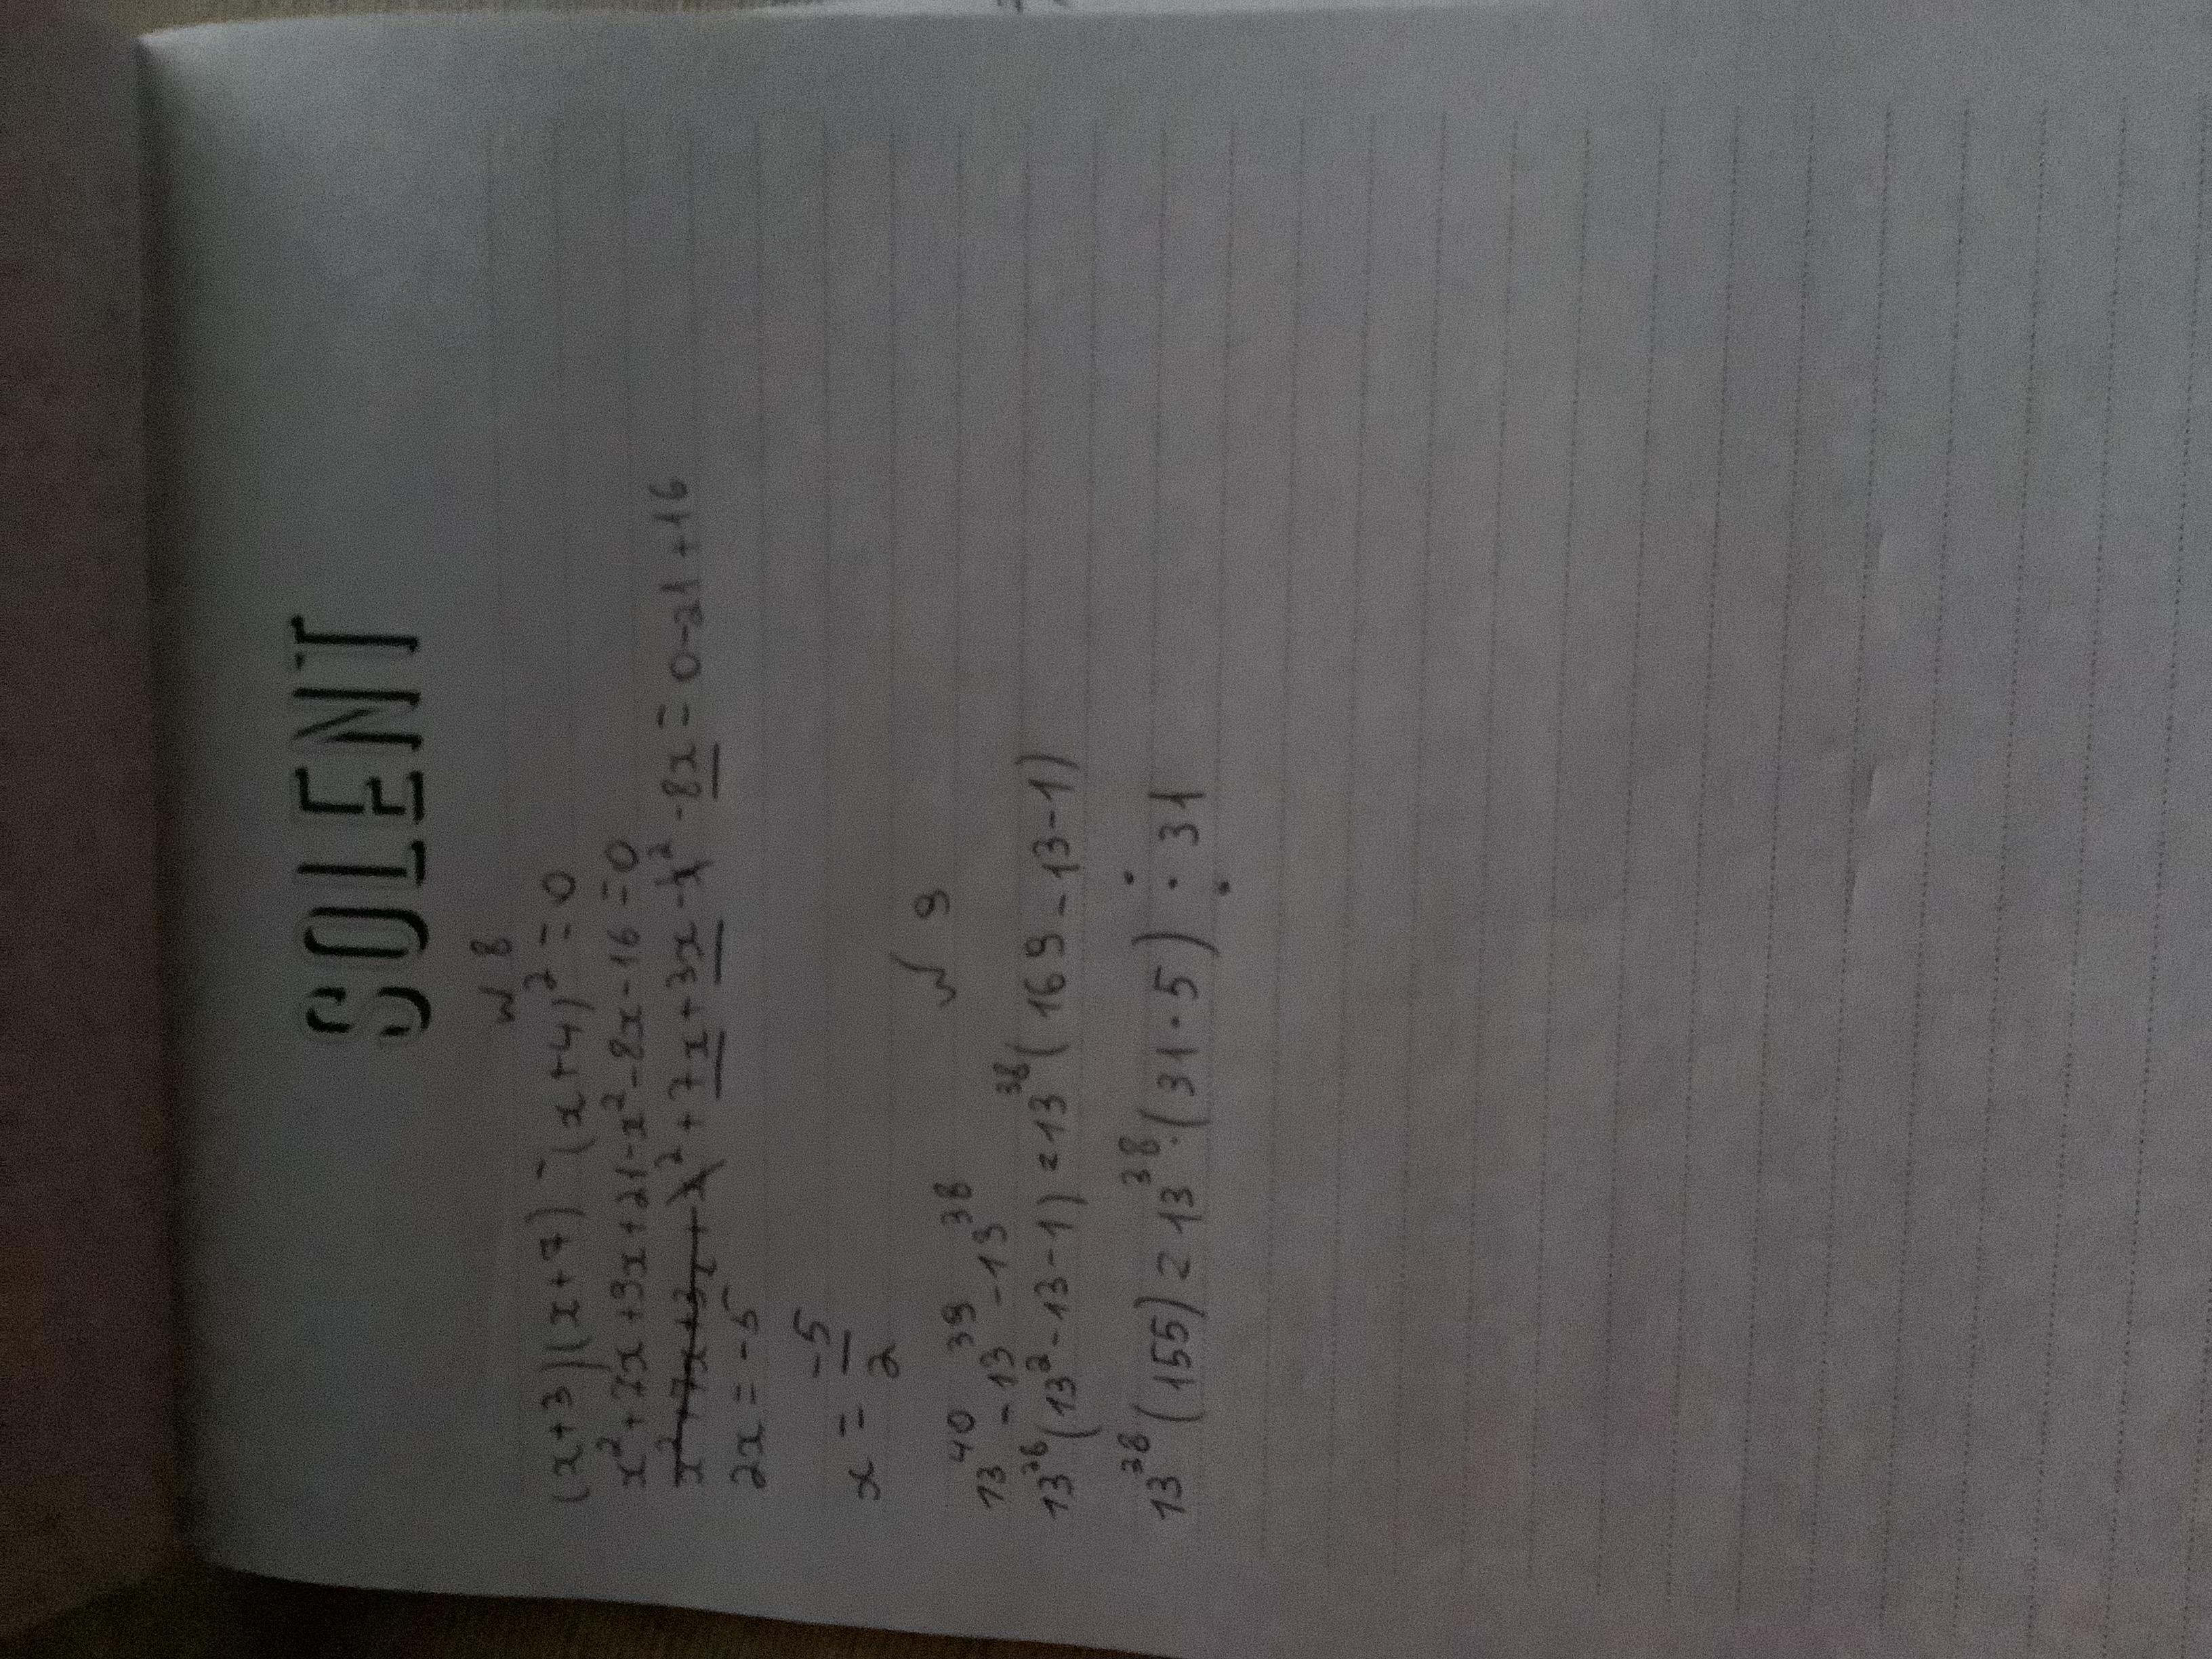 SOLENT
№ 8
(x+3)(x+7)-(x+4)²=0
x²+7x+3x+21-x²-8x-16=0
x²+7x+3x+x²+7x+3x-x²-8x=0-21+16
2x=-5
x=-5/2
№ 9
13⁴⁰-13³⁹-13³⁸
13³⁸(13²-13-1)=13³⁸(169-13-1)
13³⁸(155)=13³⁸·(31·5)⋮31